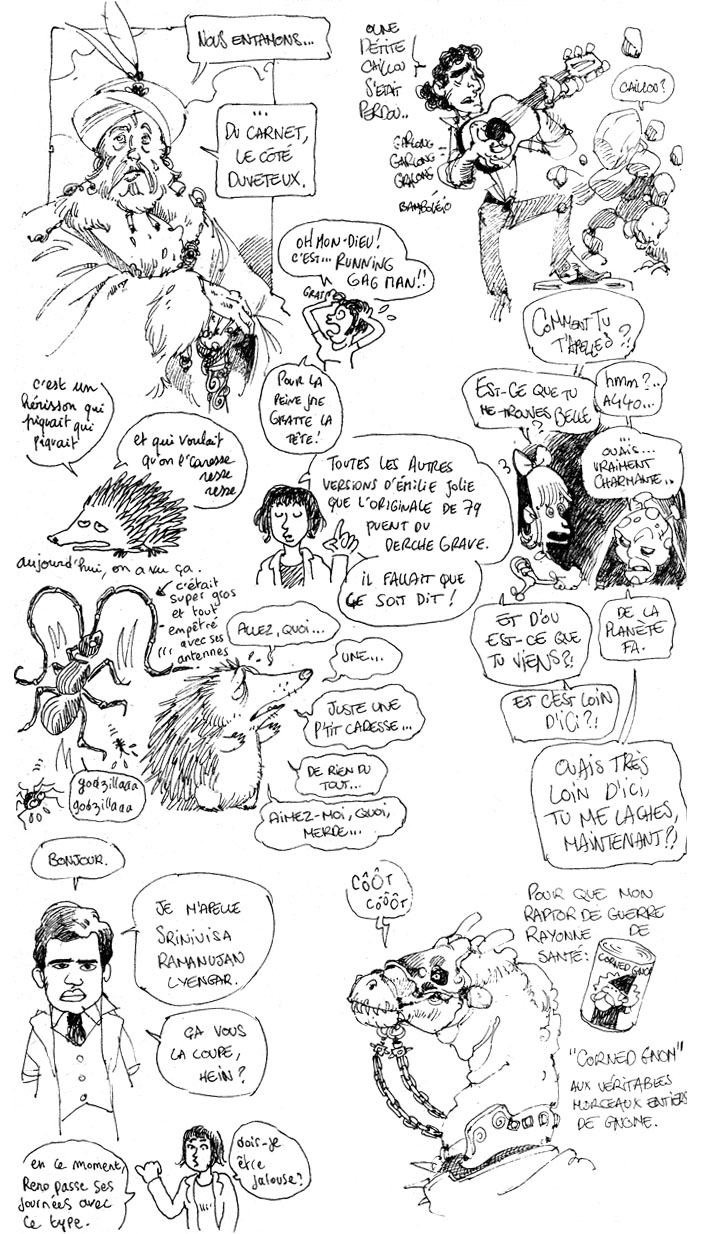 NOUS ENTAMONS...
...
DU CARNET,
LE CÔTÉ
DUVETEUX.
OUNE
PÉTITE
CAILLOU
S'ÉTAIT
PERDOU..
GARLONG
GARLONG
GRALONG
BAMBOLÉIO
CAILLOU?
OH MON-DIEU!
C'EST... RUNNING
GAG MAN!!
GRAT
POUR LA
PEINE JME
GRATTE LA
TÊTE!
COMMENT TU
T'APELLES?
EST-CE QUE TU
ME TROUVES BELLE
?
hmm?..
A440...
...
OUAIS...
VRAIMENT
CHARMANTE..
c'est un
hérisson qui
piquait qui
piquait
et qui voulait
qu'on l'caresse
resse
resse
TOUTES LES AUTRES
VERSIONS D'ÉMILIE JOLIE
QUE L'ORIGINALE DE 79
PUENT DU
DERCHE GRAVE.
IL FALLAIT QUE
CE SOIT DIT!
aujourd'hui, on a vu ça.
c'était
super gros
et tout
empêtré
avec ses
antennes
godzillaaa
godzillaaa
ALLEZ, QUOI...
UNE...
JUSTE UNE
P'TIT CARESSE...
DE RIEN DU
TOUT...
AIMEZ-MOI, QUOI,
MERDE...
ET D'OÙ
EST-CE QUE
TU VIENS?!
DE LA
PLANÈTE
FA.
ET C'EST LOIN
D'ICI?!
OUAIS TRÈS
LOIN D'ICI,
TU ME LACHES,
MAINTENANT?!
BONJOUR.
JE M'APELLE
SRINIVISA
RAMANUJAN
LYENGAR.
ÇA VOUS
LA COUPE,
HEIN?
en ce moment,
Reno passe ses
journées avec
ce type.
dois-je
être
jalouse?
CÔÔT
CÔÔÔT
POUR QUE MON
RAPTOR DE GUERRE
RAYONNE DE
SANTÉ:
CORNED GNOM
"CORNED GNOM"
AUX VÉRITABLES
MORCEAUX ENTIERS
DE GNOME.